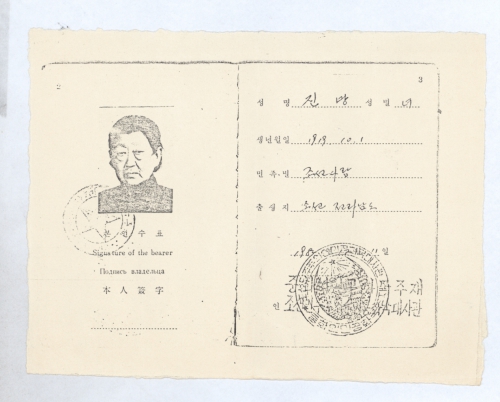 2
본 인 수 표
Signature of the bearer
Подпись владельца
本 人 簽 字
3
성 명 진 방 성 별 녀
생년월일 1919. 10. 1
민 족 명 조선사람
출 생 지 조선 전라남도
11 일
주 재
대사관